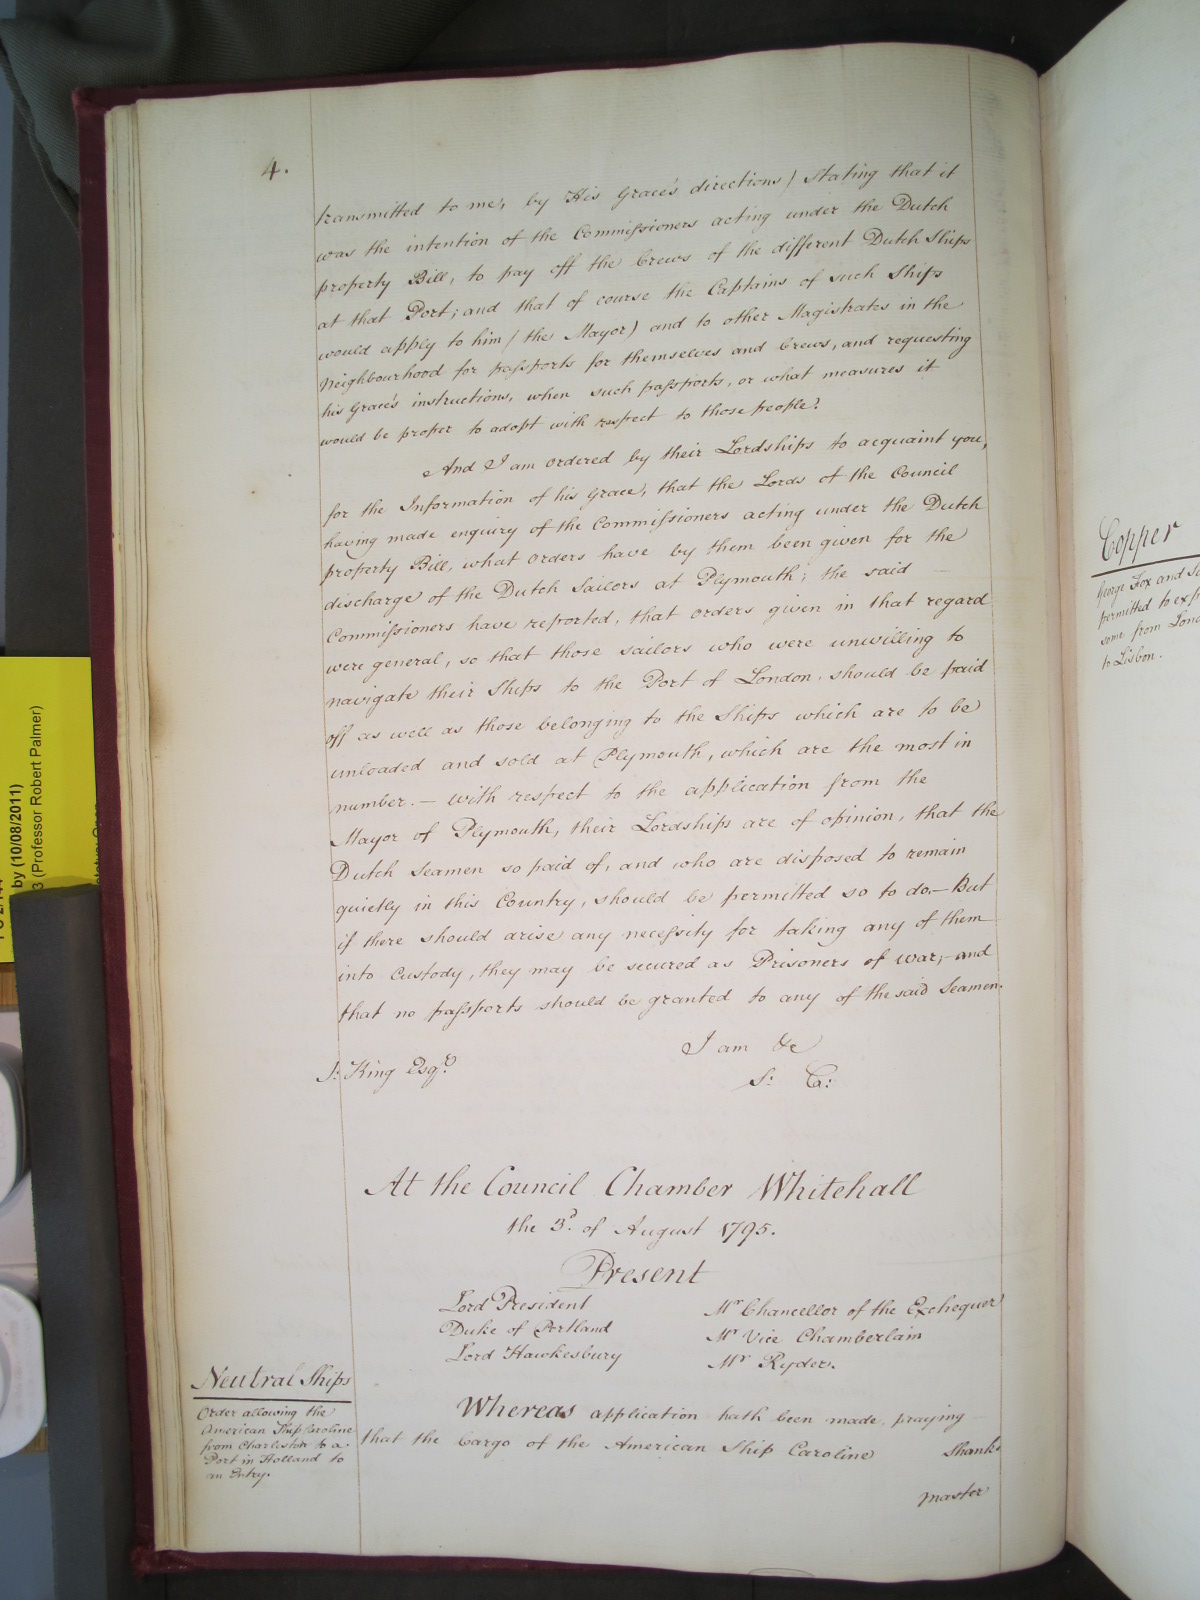 4.
transmitted to me, by His Grace's directions) stating that it
was the intention of the Commissioners acting under the Dutch
property Bill, to pay off the Crews of the different Dutch Ships
at that Port; and that of course the Captains of such Ships
would apply to him (the Mayor) and to other Magistrates in the
Neighbourhood for passports for themselves and Crews, and requesting
his Grace's instructions, when such passports, or what measures it
would be proper to adopt with respect to those people.
And I am ordered by their Lordships to acquaint you,
for the Information of his Grace, that the Lords of the Council
having made enquiry of the Commissioners acting under the Dutch
property Bill, what orders have by them been given for the
discharge of the Dutch Sailors at Plymouth; the said
Commissioners have reported, that orders given in that regard
were general, so that those sailors who were unwilling to
navigate their Ships to the Port of London, should be paid
off as well as those belonging to the Ships which are to be
unloaded and sold at Plymouth, which are the most in
number. — With respect to the application from the
Mayor of Plymouth, their Lordships are of opinion, that the
Dutch Seamen so paid of, and who are disposed to remain
quietly in this Country, should be permitted so to do. — But
if there should arise any necessity for taking any of them
into Custody, they may be secured as Prisoners of war, - and
that no passports should be granted to any of the said Seamen.
I am &c
J: King Esqr.
S: C:
At the Council Chamber Whitehall
the 3d. of August 1795.
Present
Lord President
Duke of Portland
Lord Hawkesbury
Mr Chancellor of the Exchequer
Mr Vice Chamberlain
Mr Ryder.
Neutral Ships
Order allowing the
American Ship Caroline
from Charleston to a
Port in Holland to
an Entry.
Whereas application hath been made, praying
that the Cargo of the American Ship Caroline Shanks
master
Copper
George Fox and
permitted to
some from
to Lisbon.
by (10/08/2011)
3 (Professor Robert Palmer)